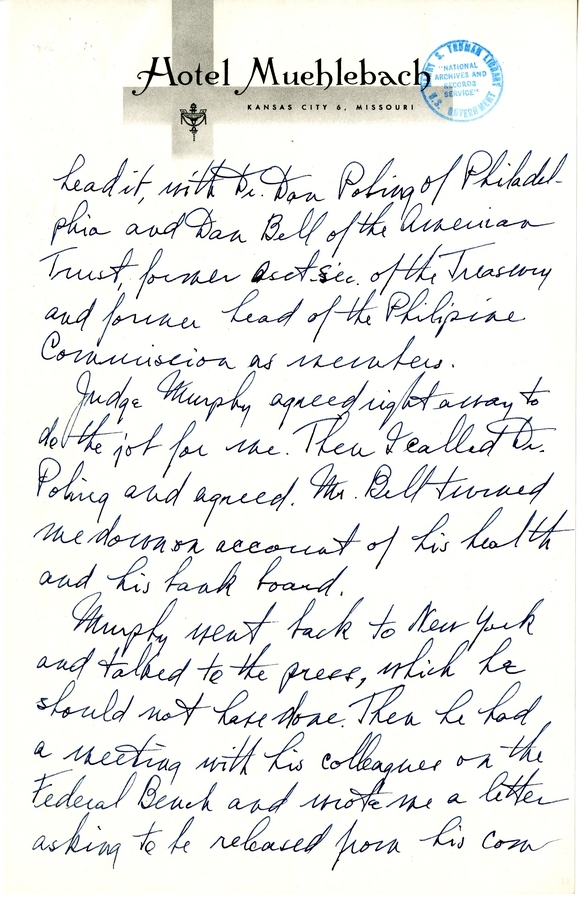 Hotel Muehlebach
KANSAS CITY 6, MISSOURI
S. TRUMAN LIBRARY
"NATIONAL
ARCHIVES AND
RECORDS
SERVICE"
U.S. GOVERNMENT
head it, with Dr. Dan Poling of Philadel-
phia and Dan Bell of the American
Trust, former asst sec. of the Treasury
and former head of the Philipine
Commission as members.
Judge Murphy agreed right away to
do the job for me. Then I called Dr.
Poling and agreed. Mr. Bell turned
me down on account of his health
and his bank board.
Murphy went back to New York
and talked to the press, which he
should not have done. Then he had
a meeting with his colleagues on the
Federal Bench and wrote me a letter
asking to be released from his com